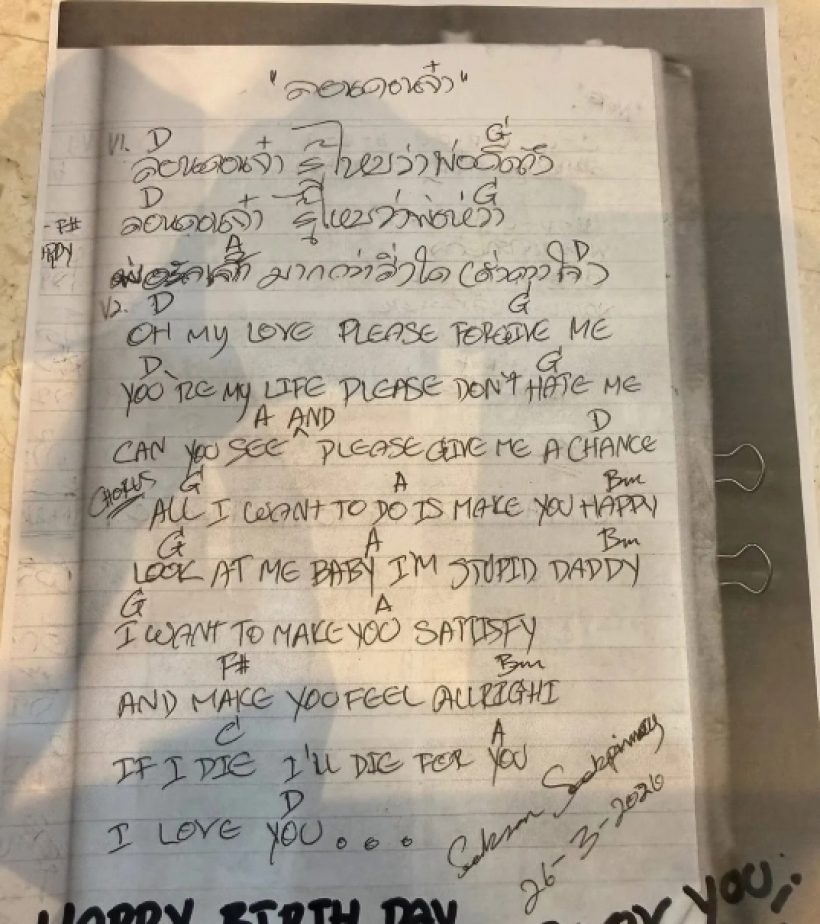 "ลอนดอนจ๋า"
V1. D G
ลอนดอนจ๋า รู้ไหมว่าพ่อคิดถึง
D G
ลอนดอนจ๋า รู้ไหมว่าพ่อห่วง
A D
มากกว่าสิ่งใด
V2. D G
OH MY LOVE PLEASE FORGIVE ME
D G
YOU'RE MY LIFE PLEASE DON'T HATE ME
A AND D
CAN YOU SEE PLEASE GIVE ME A CHANCE
CHORUS G A Bm
ALL I WANT TO DO IS MAKE YOU HAPPY
G A Bm
LOOK AT ME BABY I'M STUPID DADDY
G A
I WANT TO MAKE YOU SATTISFY
F# Bm
AND MAKE YOU FEEL ALLRIGHT
C A
IF I DIE I'LL DIE FOR YOU
D
I LOVE YOU...
26-3-2020
HAPPY BIRTH DAY
YOU